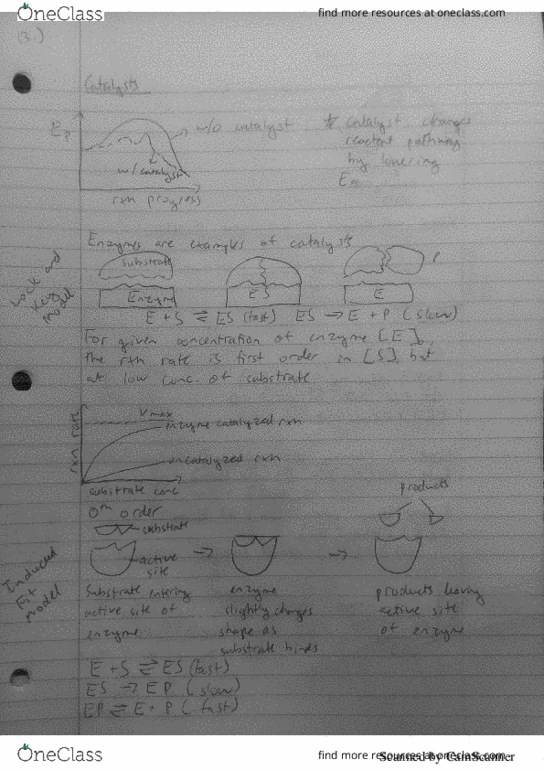 OneClass
find more resources at oneclass.com
13.)
Catalysts
Ep
w/o catalyst
w/ catalyst
rxn progress
* Catalyst changes
reactant pathway
by lowering
Ea
Enzymes are examples of catalysts
Lock and
Key
Model
Substrate
Enzyme
ES
P
E
E + S ⇌ ES (fast) ES → E + P (slow)
For given concentration of enzyme [E],
the rxn rate is first order in [S], but
at low conc. of substrate
rxn rate
Vmax
enzyme catalyzed rxn
uncatalyzed rxn
substrate conc
0th order
products
substrate
active
site
Induced
Fit
Model
Substrate entering
active site of
enzyme
enzyme
slightly changes
shape as
substrate binds
products leaving
active site
of enzyme
E + S ⇌ ES (fast)
ES → EP (slow)
EP ⇌ E + P (fast)
OneClass
find more resources at oneclass.com
Scanned by CamScanner